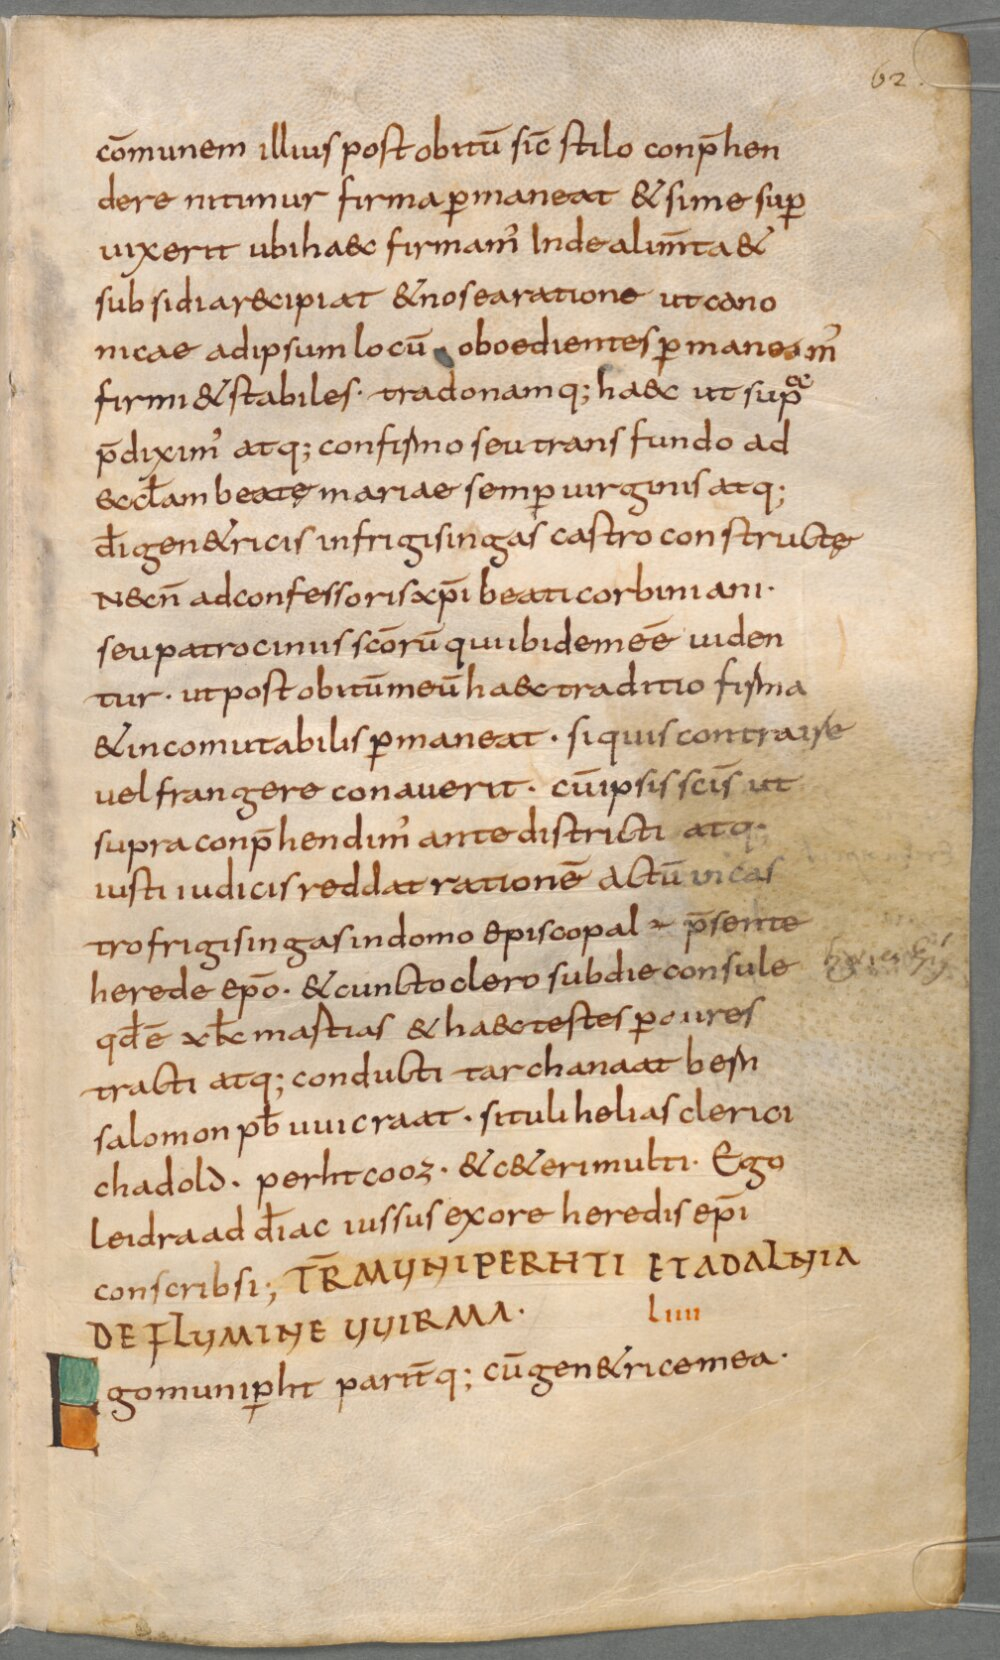 62.
cōmunem illius post obitū sic̄ stilo conp̄hen
dere nitimur firma ꝑmaneat & si me suꝑ
uixerit ubi haec firmam᾽ Inde alim̄ta &
subsidia r&cipiat & nos ea ratione ut cano
nicae ad ipsum locū oboedientes ꝑmaneam᾽
firmi & stabiles· tradonamq; haec ut sup̄
p̄dixim᾽ atq; confirmo seu transfundo ad
&ccl̄am beatę mariae semꝑ uirginis atq;
dī gen&ricis in frigisingas castro constructę
N&cn̄ ad confessoris xp̄i beati corbiniani·
seu patrociniis scōrū qui ibidem eē uiden
tur· ut post obitū meū haec traditio firma
& incomutabilis ꝑmaneat· si quis contraire
uel frangere conauerit· cū ipsis scīs ut
supra conp̄hendim᾽ ante districti atq;
iusti iudicis reddat rationē actū in cas
tro frigisingas in domo episcopal p̄sente
herede ep̄o· & cuncto clero sub die consule
qd̄ ē xkl̄ mastias & haec testes ꝑ aures
tracti atq; conducti tarchanaat bern
salomon pb̄ uuicraat· situli helias clerici
chadold· perht cooz· & c&eri multi· Ego
leidraad diāc iussus ex ore heredis ep̄i
conscribsi; TR̄ MUNIPERHTI ET ADALNIA
DE FLUMINE UUIRMA·
liiii
Ego muniꝑht parit̄q; cū gen&rice mea·